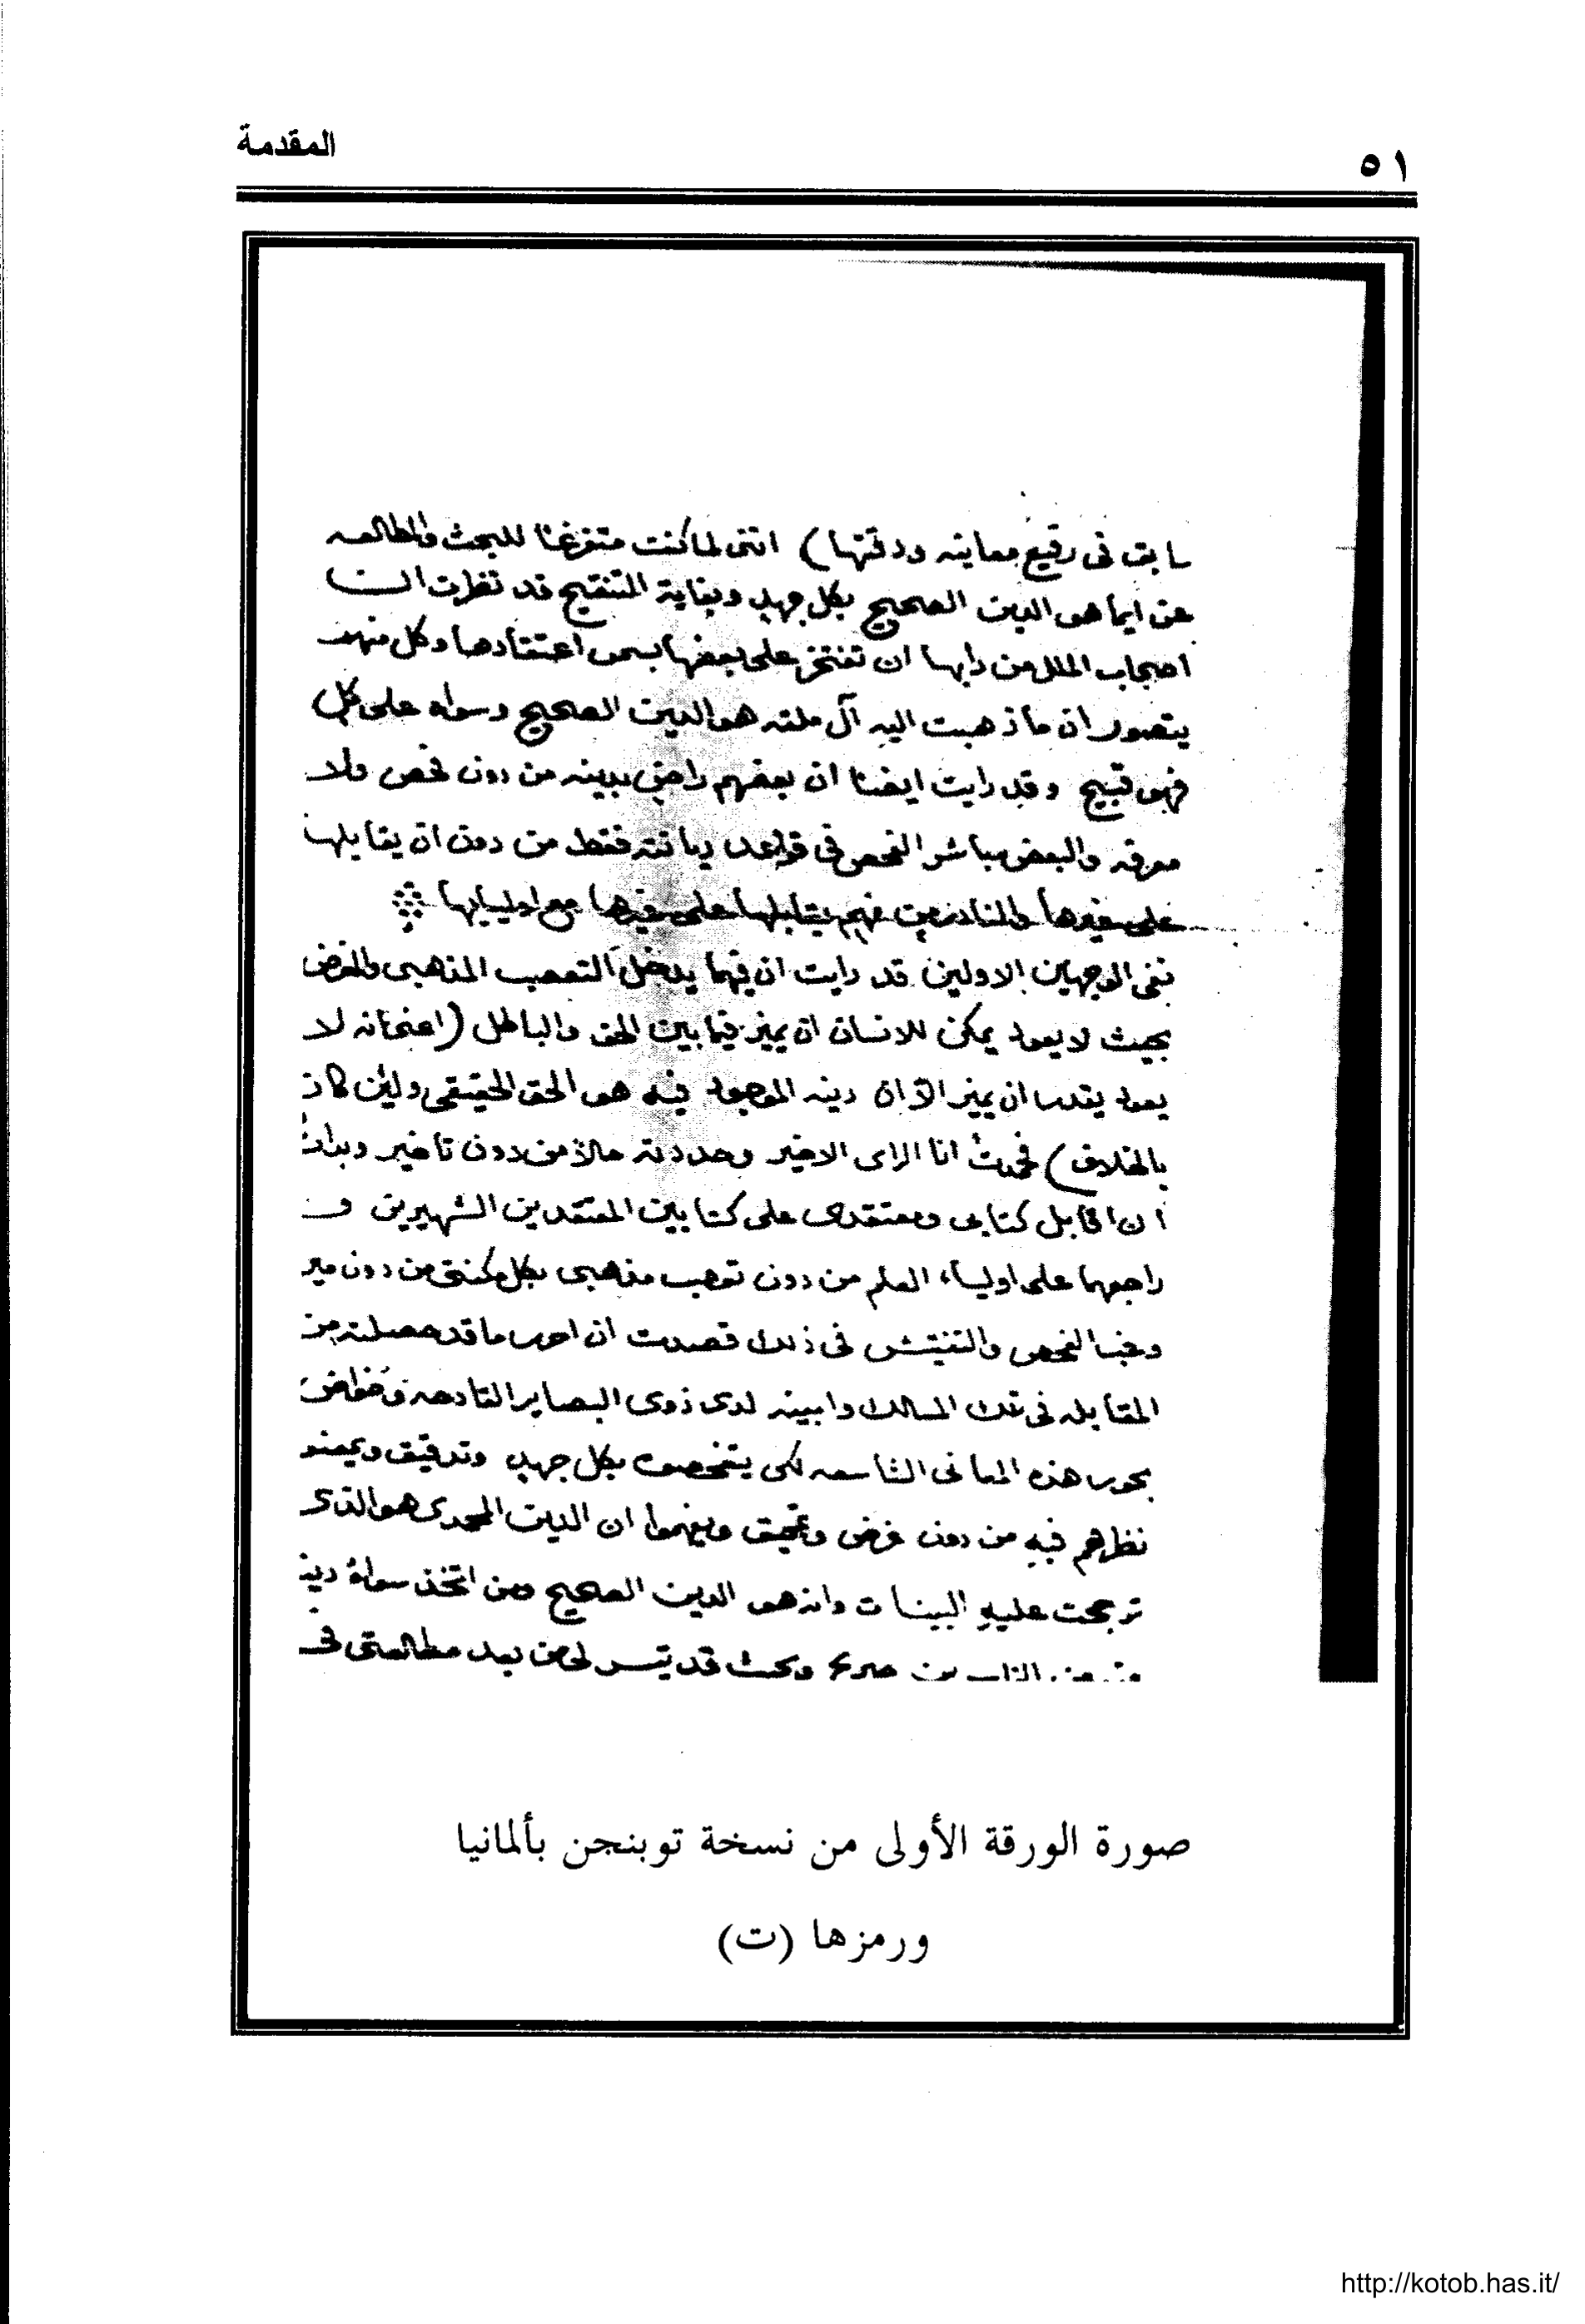 ٥١
المقدمة
سابق فى رقيع معاينه ودقتها) اننى لما كنت متفرغا للبحث والمطالعه
عن ايما هو الدين الصحيح بكل جهد وبغاية التنقيح قد نظرت ان
اصحاب الملل من دابها ان تفتخر على بعضها بسمو اعتقادها وكل منهم
يتصور ان ما ذهبت اليه آل ملته هو الدين الصحيح وسواه على كل
فهو قبيح وقد رايت ايضا ان بعضهم راضى بدينه من دون فحص ولا
معرفه والبعض مباشر الفحص فى قواعد ديانته فقط من دون ان يقابلها
على غيرها والنادر من فيهم يقابلها على غيرها مع اوليايها
ففى الوجهين الاولين قد رايت ان فيهما يدخل التعصب المذهبى والغرض
بحيث لا يعود يمكن للانسان ان يميز فيما بين الحق والباطل (اعنى انه لا
يعود يقدر ان يميز ان دينه الموجود فيه هو الحق الحقيقى ولين كان
بالخلاف) انا الراى الاخير وحددته حالاً من دون تاخير وبدات
ان اقابل كتابى ومعتقدى على كتابين المعتقدين الشهيرين و
راجعهما على اولياء العلم من دون تعصب مذهبى بكل مكنتى من دون مير
وغب الفحص والتفتيش فى ذلك قصدت ان احرر ما قد حصلته من
المقابله فى تلك المسالك وابينه لدى ذوى البصاير القادحه وغواض
بحور هذه المعانى الشاسعه لكى يتفحصوه بكل جهد وتدقيق ويمعنو
نظرهم فيه من دون غرض وتحيق ويفهموا ان الدين المحمدى هو الذى
ترجحت عليه البينات وانه هو الدين الصحيح ومن اتخذ سواه دين
وبحث قد تيسر لى من بعد مطالعتى فى
صورة الورقة الأولى من نسخة توبنجن بألمانيا
ورمزها (ت)
http://kotob.has.it/